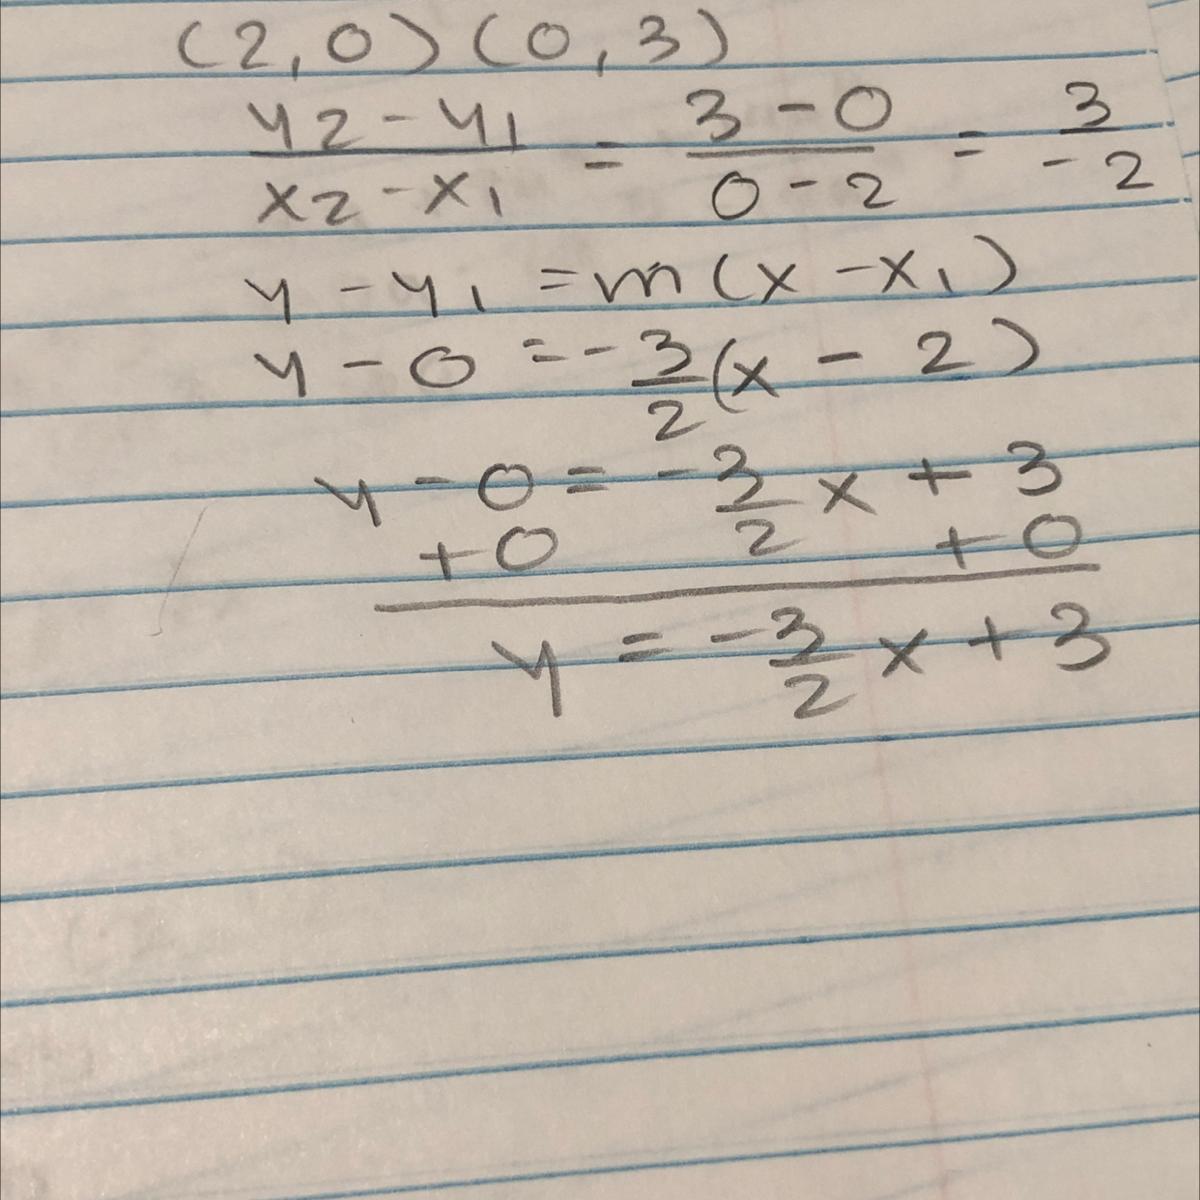 (2,0)(0,3)
y2-y1/x2-x1 = 3-0/0-2 = 3/-2
y-y1=m(x-x1)
y-0=-3/2(x-2)
y-0=-3/2x+3
+0 +0
y=-3/2x+3